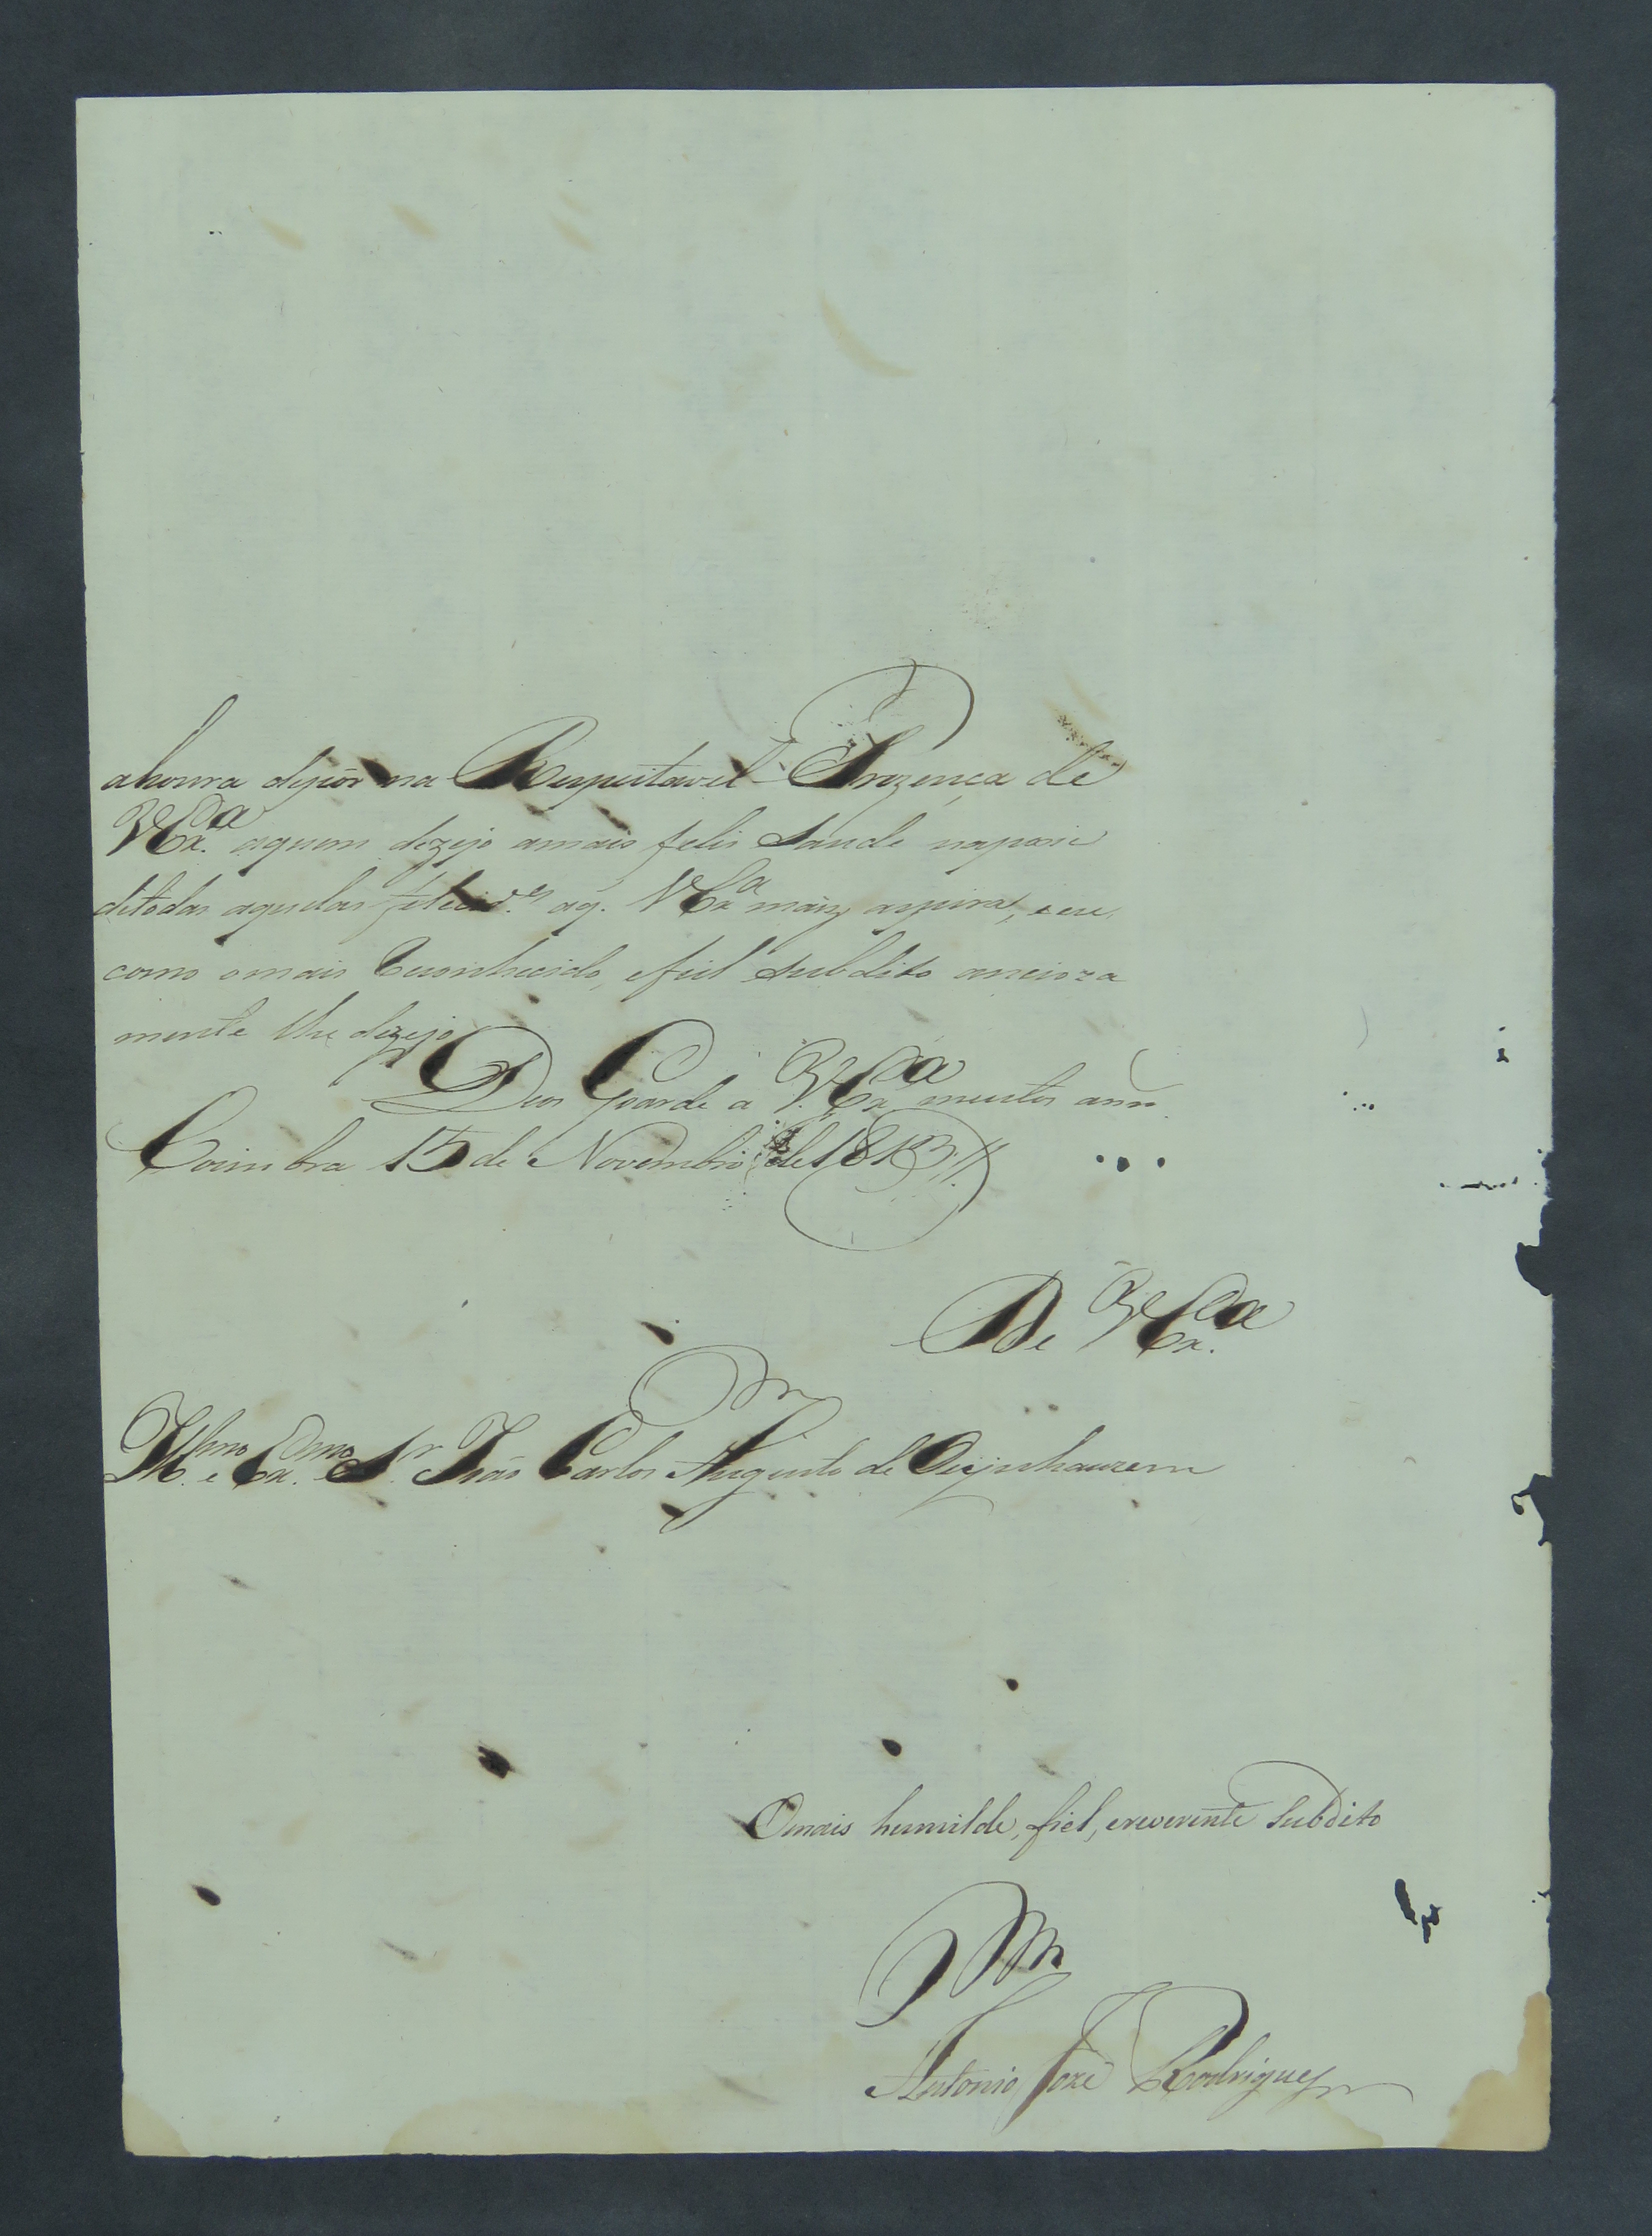 ahonra depôr na Respeitavel Prezença de
V Ex.ª aquem dezejo amais felis Saude naposse
detodas aquelas felicid.es aq. V Exª mais aspira, e eu
como omais Reconhecido, efiel subdito ancioza
mente lhe dezejo
Deos Guarde a V. Exª muitos ann
Coimbra 15 de Novembro de 1813 //
De V Ex.ª
Ill.mo e Ex.mo S.r João Carlos Augusto de Oeijnhauzem
Omais humilde, fiel, ereverente Subdito
Antonio Joze Rodrigues